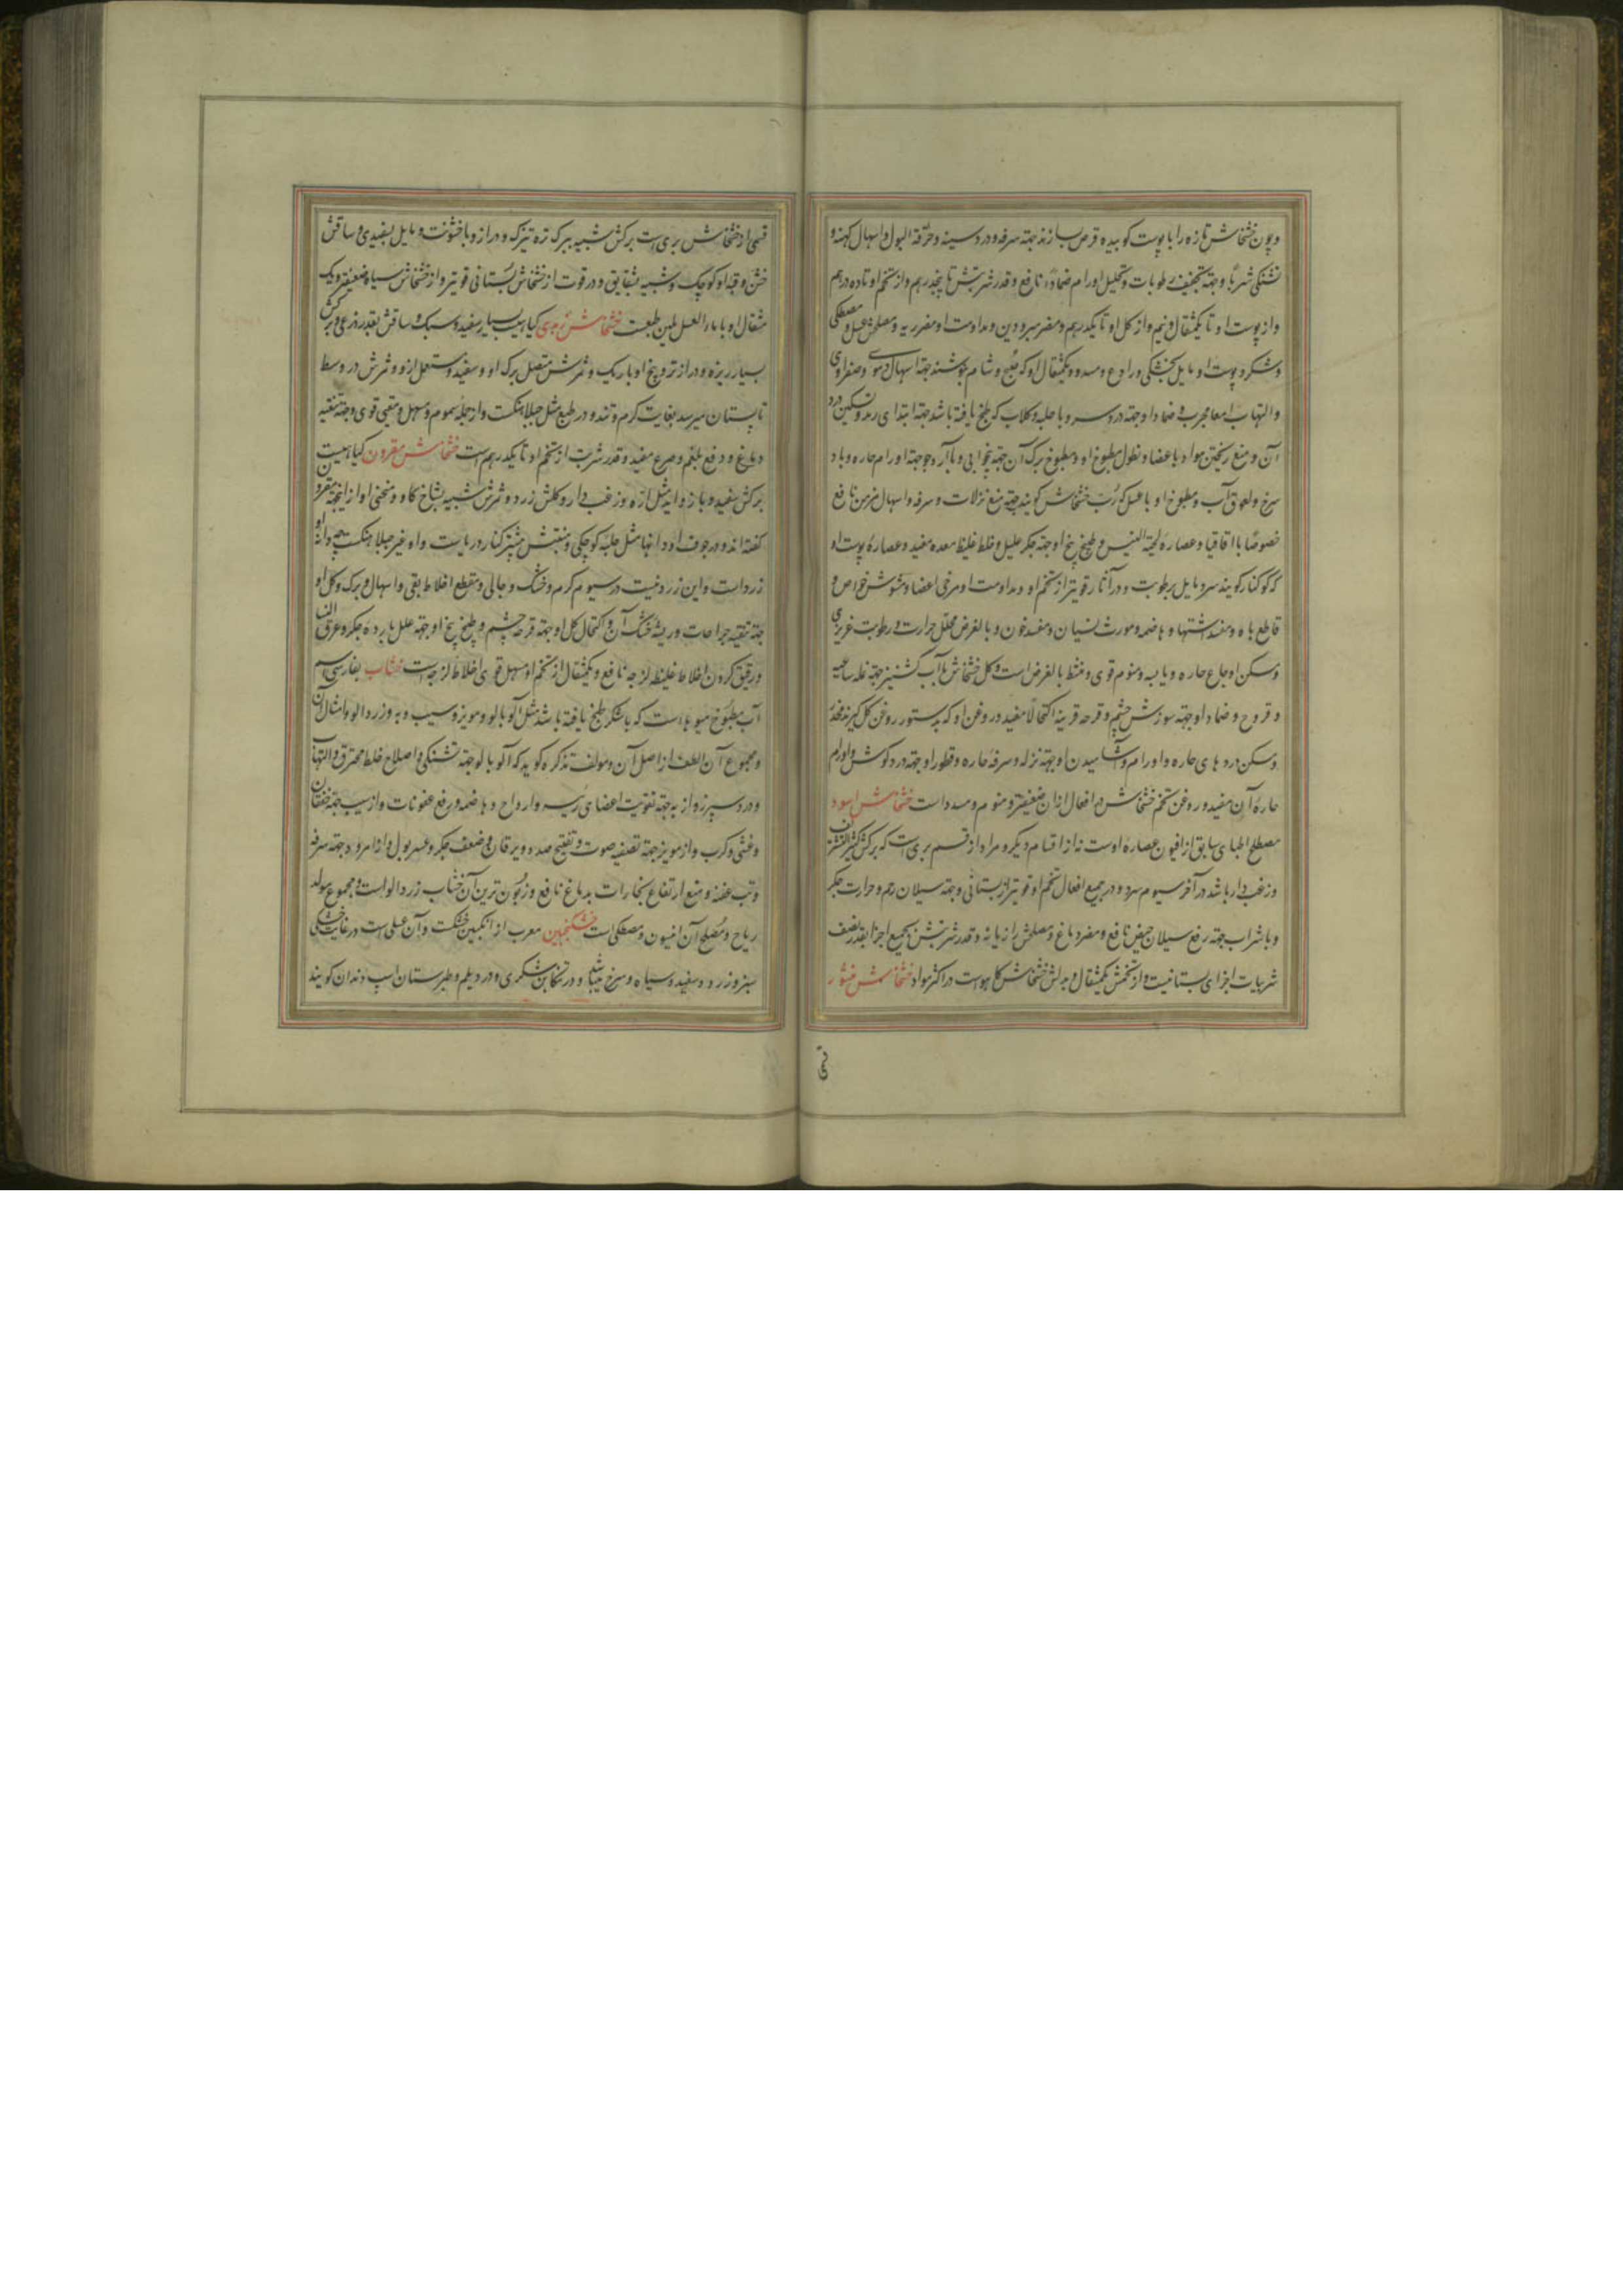 و چون خشخاش تازه را با پوست کوبیده قرص سازند جهة سرفه و درد سینه و حرقة البول و اسهال کهنه و
تشنکی شربا و جهة تجفیف رطوبات و تحلیل اورام ضمادا نافع و قدر شربتش تا پنجدرهم و از تخم او تا ده درهم
و از پوست او تا یکمثقال و نیم و از کل او تا یکدرهم و مضر مبرودین و مداومت او مضر ریه و مصلحش عسل و مصطکی
و شکر و پوست او مایل بخشکی و رادع و مسدد و یکمثقال او که صبح و شام بنوشند جهة اسهال دموی و صفراوی
و التهاب امعا مجرب و ضماد او جهة درد سر و با حلبه و کلاب که طبخ یافته باشد جهة ابتدای رمد و تسکین درد
آن و منع ریختن مواد باعضا و نطول مطبوخ او و مطبوخ برک آن جهة بیخوابی و با آرد جو جهة اورام حاره و باد
سرخ و لعوق آب مطبوخ او با عسل که رب خشخاش کویند جهة منع نزلات و سرفه و اسهال مزمن نافع
خصوصا با اقاقیا و عصاره لحیة التیس و طبیخ بیخ او جهة جکر علیل و خلط غلیظ معده مفید و عصاره پوست او
که کوکنار کویند سرد و مایل برطوبت و در آثار قویتر از تخم او و مداومت او مرخی اعضا و مشوش حواس و
قاطع باه و مفسد اشتها و هاضمه و مورث نسیان و مفسد خون و بالعرض محلل حرارت و رطوبت غریزی
و مسکن اوجاع حاره و یابسه و منوم قوی و منشط بالعرض است و کل خشخاش با آب کشنیز جهة نمله ساعیه
و قروح و ضماد او جهة سوزش چشم و قرحه قرنیه اکتحالا مفید و روغن او که بدستور روغن کل کیرند مخدر
و مسکن درد های حاره و اورام و آشامیدن او جهة نزله و سرفه حاره و قطور او جهة درد کوش و اورام
حاره آن مفید و روغن تخم خشخاش در افعال ازان ضعیفتر و منوم و مسدد است خشخاش اسود
مصطلح اطبای سابق از افیون عصاره اوست نه از اقسام دیکر و مراد از قسم بری است که برکش کثیر التشریف
و زغب دار باشد در آخر سیوم سرد و در جمیع افعال تخم او قویتر از بستانی و جهة سیلان رحم و حرارت جکر
و با شراب جهة رفع سیلان حیض نافع و مضر دماغ و مصلحش رازیانه و قدر شربتش بجمیع اجزا بقدر نصف
شربیات اجزای بستانیست و از تخمش یکمثقال و بدلش خشخاش کاهوست در اکثر مواد خشخاش منثور
قسمی از خشخاش بری است برکش شبیه ببرک تره تیزک و دراز و با خشونت و مایل بسفیدی و ساقش
خشن و قبه او کوچک و شبیه بشقایق و در قوت از خشخاش بستانی قویتر و از خشخاش سیاه ضعیفتر و یک
مثقال او با ماء العسل ملین طبعست خشخاش زبدی کیاهیست بسیار سفید و سبک و ساقش بقدر ذرعی و برکش
بسیار ریزه و دراز تر و بیخ او باریک و ثمرش متصل ببرک او و سفید و مستعمل ازو و ثمرش در وسط
تابستان میرسد بغایت کرم و تند و در طبع مثل جبلاهنکست و از جمله سموم و مسهل و مقیی قوی و جهة تنقیه
دماغ و دفع بلغم و صرع مفید و قدر شربت از تخم او تا یکدرهم است خشخاش مقرن کیاهیست
برکش سفید و با زواید مثل اره و زغب دار و کلش زرد و ثمرش شبیه بشاخ کاو و منحنی او از اینجهة مقرن
کفته اند و در جوف او دانها مثل حلبه کوچکی و منبتش بیشتر کنار دریاست و او غیر جبلاهنکست چه دانه او
زرد است و این زرد نیست در سیوم کرم و خشک و جالی و مقطع اخلاط بقی و اسهال و برک و کل او
جهة تنقیه جراحات و ریشه خشک آن و اکتحال کل او جهة قرحه چشم و طبخ بیخ او جهة علل بارده جکر و عرق النسا
و رقیق کردن اخلاط غلیظه لزجه نافع و یکمثقال از تخم او مسهل قوی اخلاط لزجه است خشاب بفارسی اسم
آب مطبوخ میوهاست که با شکر طبخ یافته باشد مثل آلو بالو و مویز و سیب و به و زردالو و امثال آن
و مجموع آن الطف از اصل آن و مولف تذکره کوید که آلو بالو جهة تشنکی و اصلاح خلط محترق و التهاب
و درد سپرز و از به جهة تقویت اعضای رئیسه و ارواح و هاضمه و رفع عفونات و از سیب جهة خفقان
و غشی و کرب و از مویز جهة تصفیه صوت و تفتیح صدد و یرقان و ضعف جکر و عسر بول و از امرود جهة سرفه
و تب عفنه و منع ارتفاع بخارات بدماغ نافع و زبون ترین آن خشاب زردالو است و مجموع مولد
ریاح و مصلح آن انیسون و مصطکی است خشکنجبین معرب از انکبین خشکست و آن عسلی است در غایت خشکی
سبز و زرد و سفید و سیاه و سرخ میباشد و در تنکابن شکمری و در دیلم و طبرستان اسپ دندان کویند
قسمی